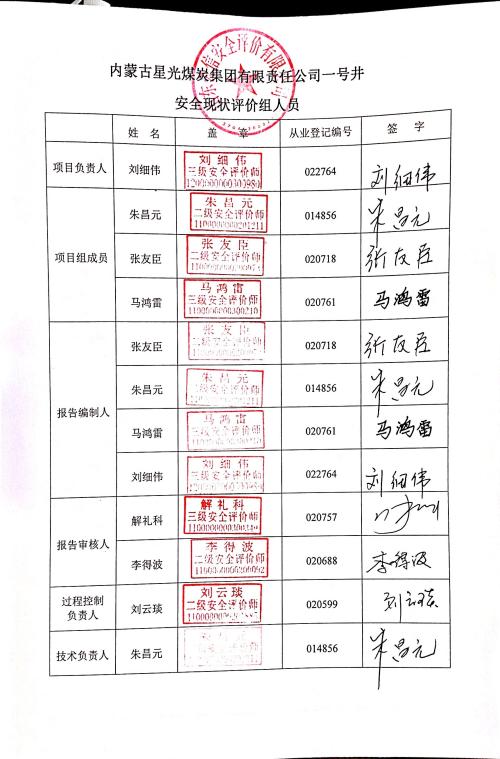 内蒙古星光煤炭集团有限责任公司一号井
安全现状评价组人员
姓 名 盖 章 从业登记编号 签 字
项目负责人 刘细伟 刘细伟 三级安全评价师 1200000000300980 022764 刘细伟
项目组成员
朱昌元 朱昌元 二级安全评价师 1100000000201211 014856 朱昌元
张友臣 张友臣 二级安全评价师 020718 张友臣
马鸿雷 马鸿雷 三级安全评价师 1100000000300210 020761 马鸿雷
报告编制人
张友臣 张友臣 二级安全评价师 020718 张友臣
朱昌元 朱昌元 二级安全评价师 014856 朱昌元
马鸿雷 马鸿雷 三级安全评价师 020761 马鸿雷
刘细伟 刘细伟 三级安全评价师 022764 刘细伟
报告审核人
解礼科 解礼科 三级安全评价师 020757
李得波 李得波 二级安全评价师 020688 李得波
过程控制
负责人
刘云琰 刘云琰 二级安全评价师 020599 刘云琰
技术负责人 朱昌元 014856 朱昌元